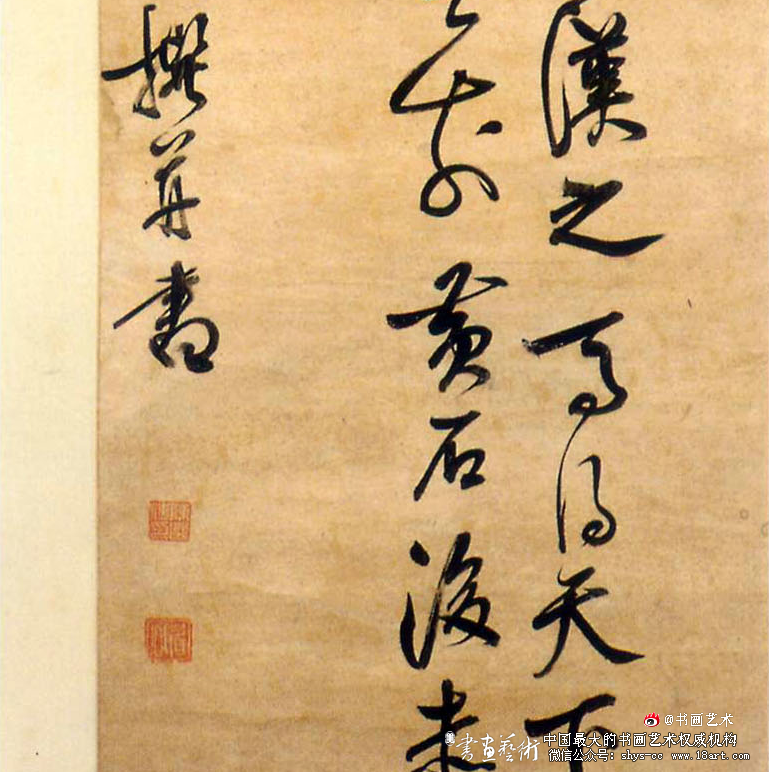 漢之得天下
前黄石後赤
撰并書
@书画艺术
書画藝術
中国最大的书画艺术权威机构
微信公众号: shys-cc www.18art.com